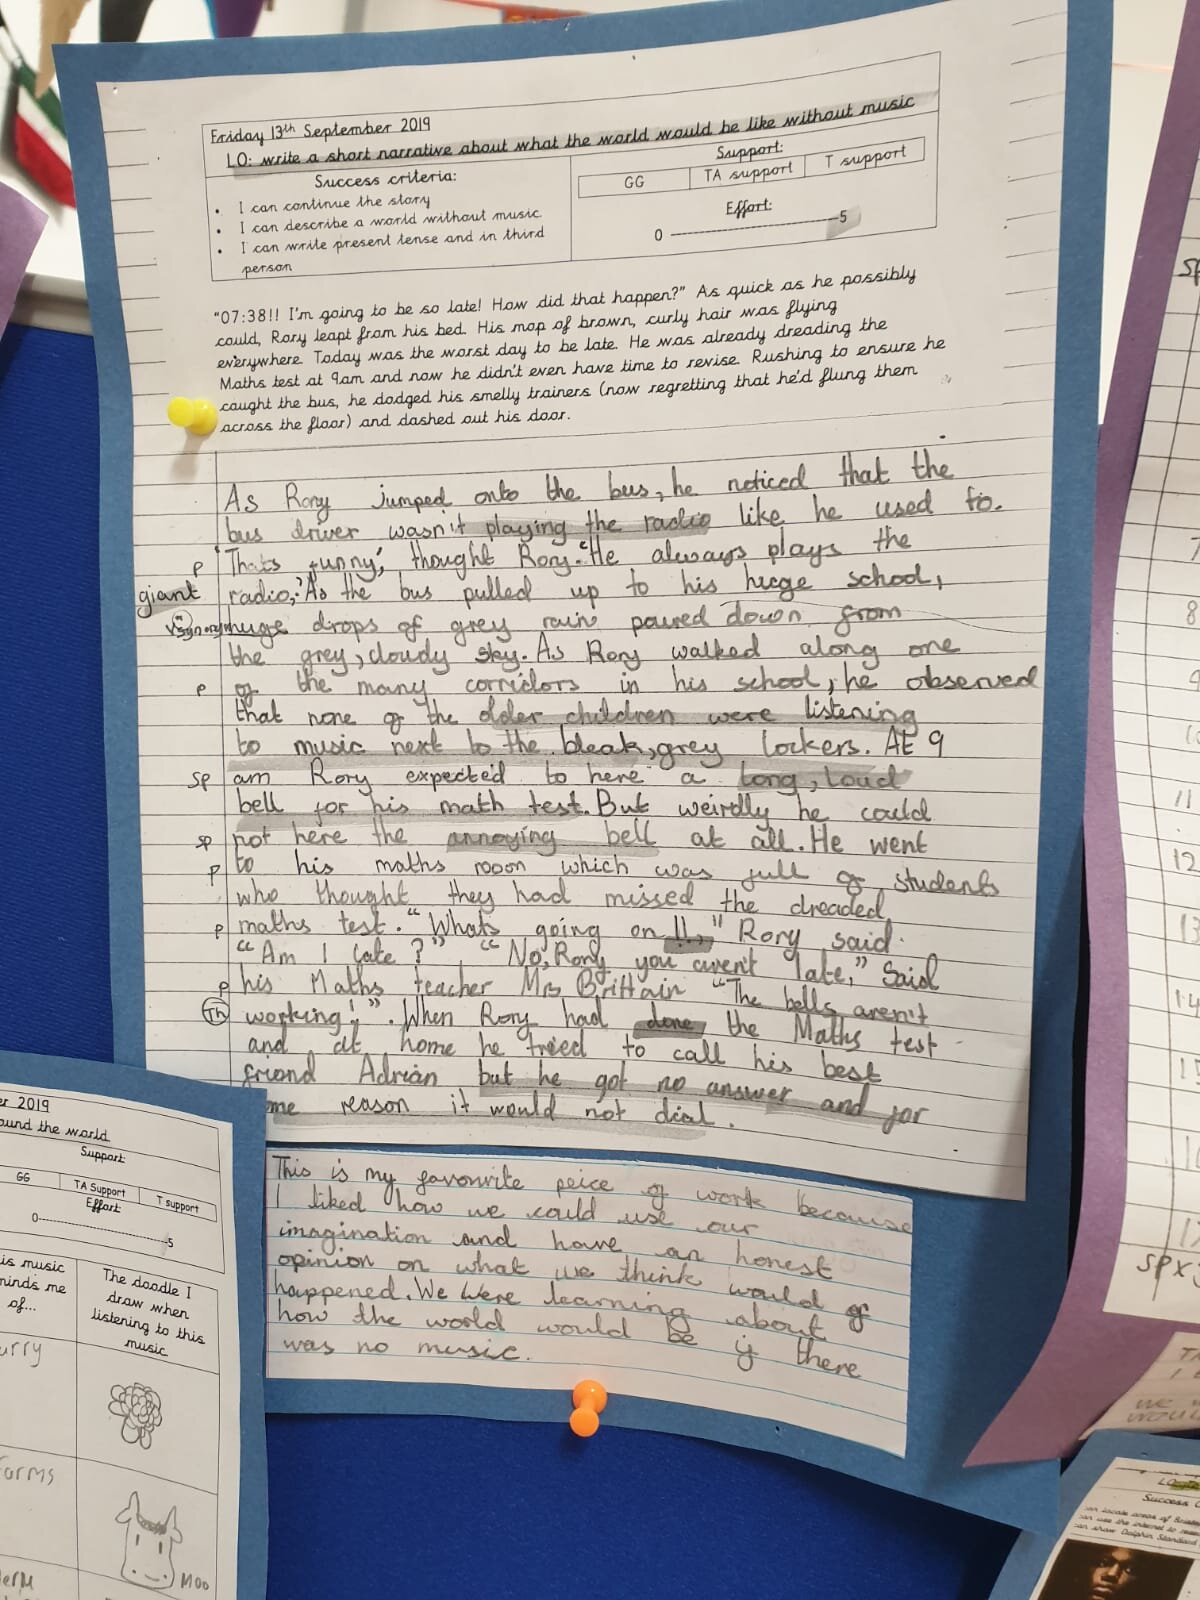 Friday 13th September 2019
LO: write a short narrative about what the world would be like without music
Success criteria:
• I can continue the story
• I can describe a world without music
• I can write present tense and in third
person
Support:
GG TA support T support
Effort:
0 5
"07:38!! I'm going to be so late! How did that happen?" As quick as he possibly
could, Rory leapt from his bed. His mop of brown, curly hair was flying
everywhere. Today was the worst day to be late. He was already dreading the
Maths test at 9am and now he didn't even have time to revise. Rushing to ensure he
caught the bus, he dodged his smelly trainers (now regretting that he'd flung them
across the floor) and dashed out his door.
As Rory jumped onto the bus, he noticed that the
bus driver wasn't playing the radio like he used to.
P 'Thats funny,' thought Rory. 'He always plays the
giant radio,' As the bus pulled up to his huge school,
huge drops of grey rain poured down from
the grey, cloudy sky. As Rory walked along one
P of the many corridors in his school, he observed
that none of the older children were listening
to music next to the bleak, grey lockers. At 9
sp am Rory expected to here a long, loud
bell for his math test. But weirdly he could
sp not here the annoying bell at all. He went
P to his maths rooon which was full of students
who thought they had missed the dreaded
P maths test. "Whats going on!!," Rory said.
"Am I late?" "No, Rory you arent late," Said
P his Maths teacher Mrs Brittain "The bells aren't
Th working!". When Rory had done the Maths test
and at home he treed to call his best
friend Adrian but he got no answer and for
me reason it would not dial.
This is my favourite peice of work because
I liked how we could use our
imagination and have an honest
opinion on what we think would of
happened. We were learning about
how the world would be if there
was no music.
er 2019
ound the world
Support
GG TA Support T support
Effort
0 5
is music
minds me
of...
The doodle I
draw when
listening to this
music
urry
arms
Moo
sp
7
8
9
11
12
13
14
Success C